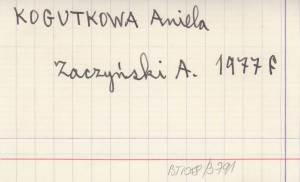 KOGUTKOWA Aniela
Zaczyński A. 1977 f
BT/OEP/B-791